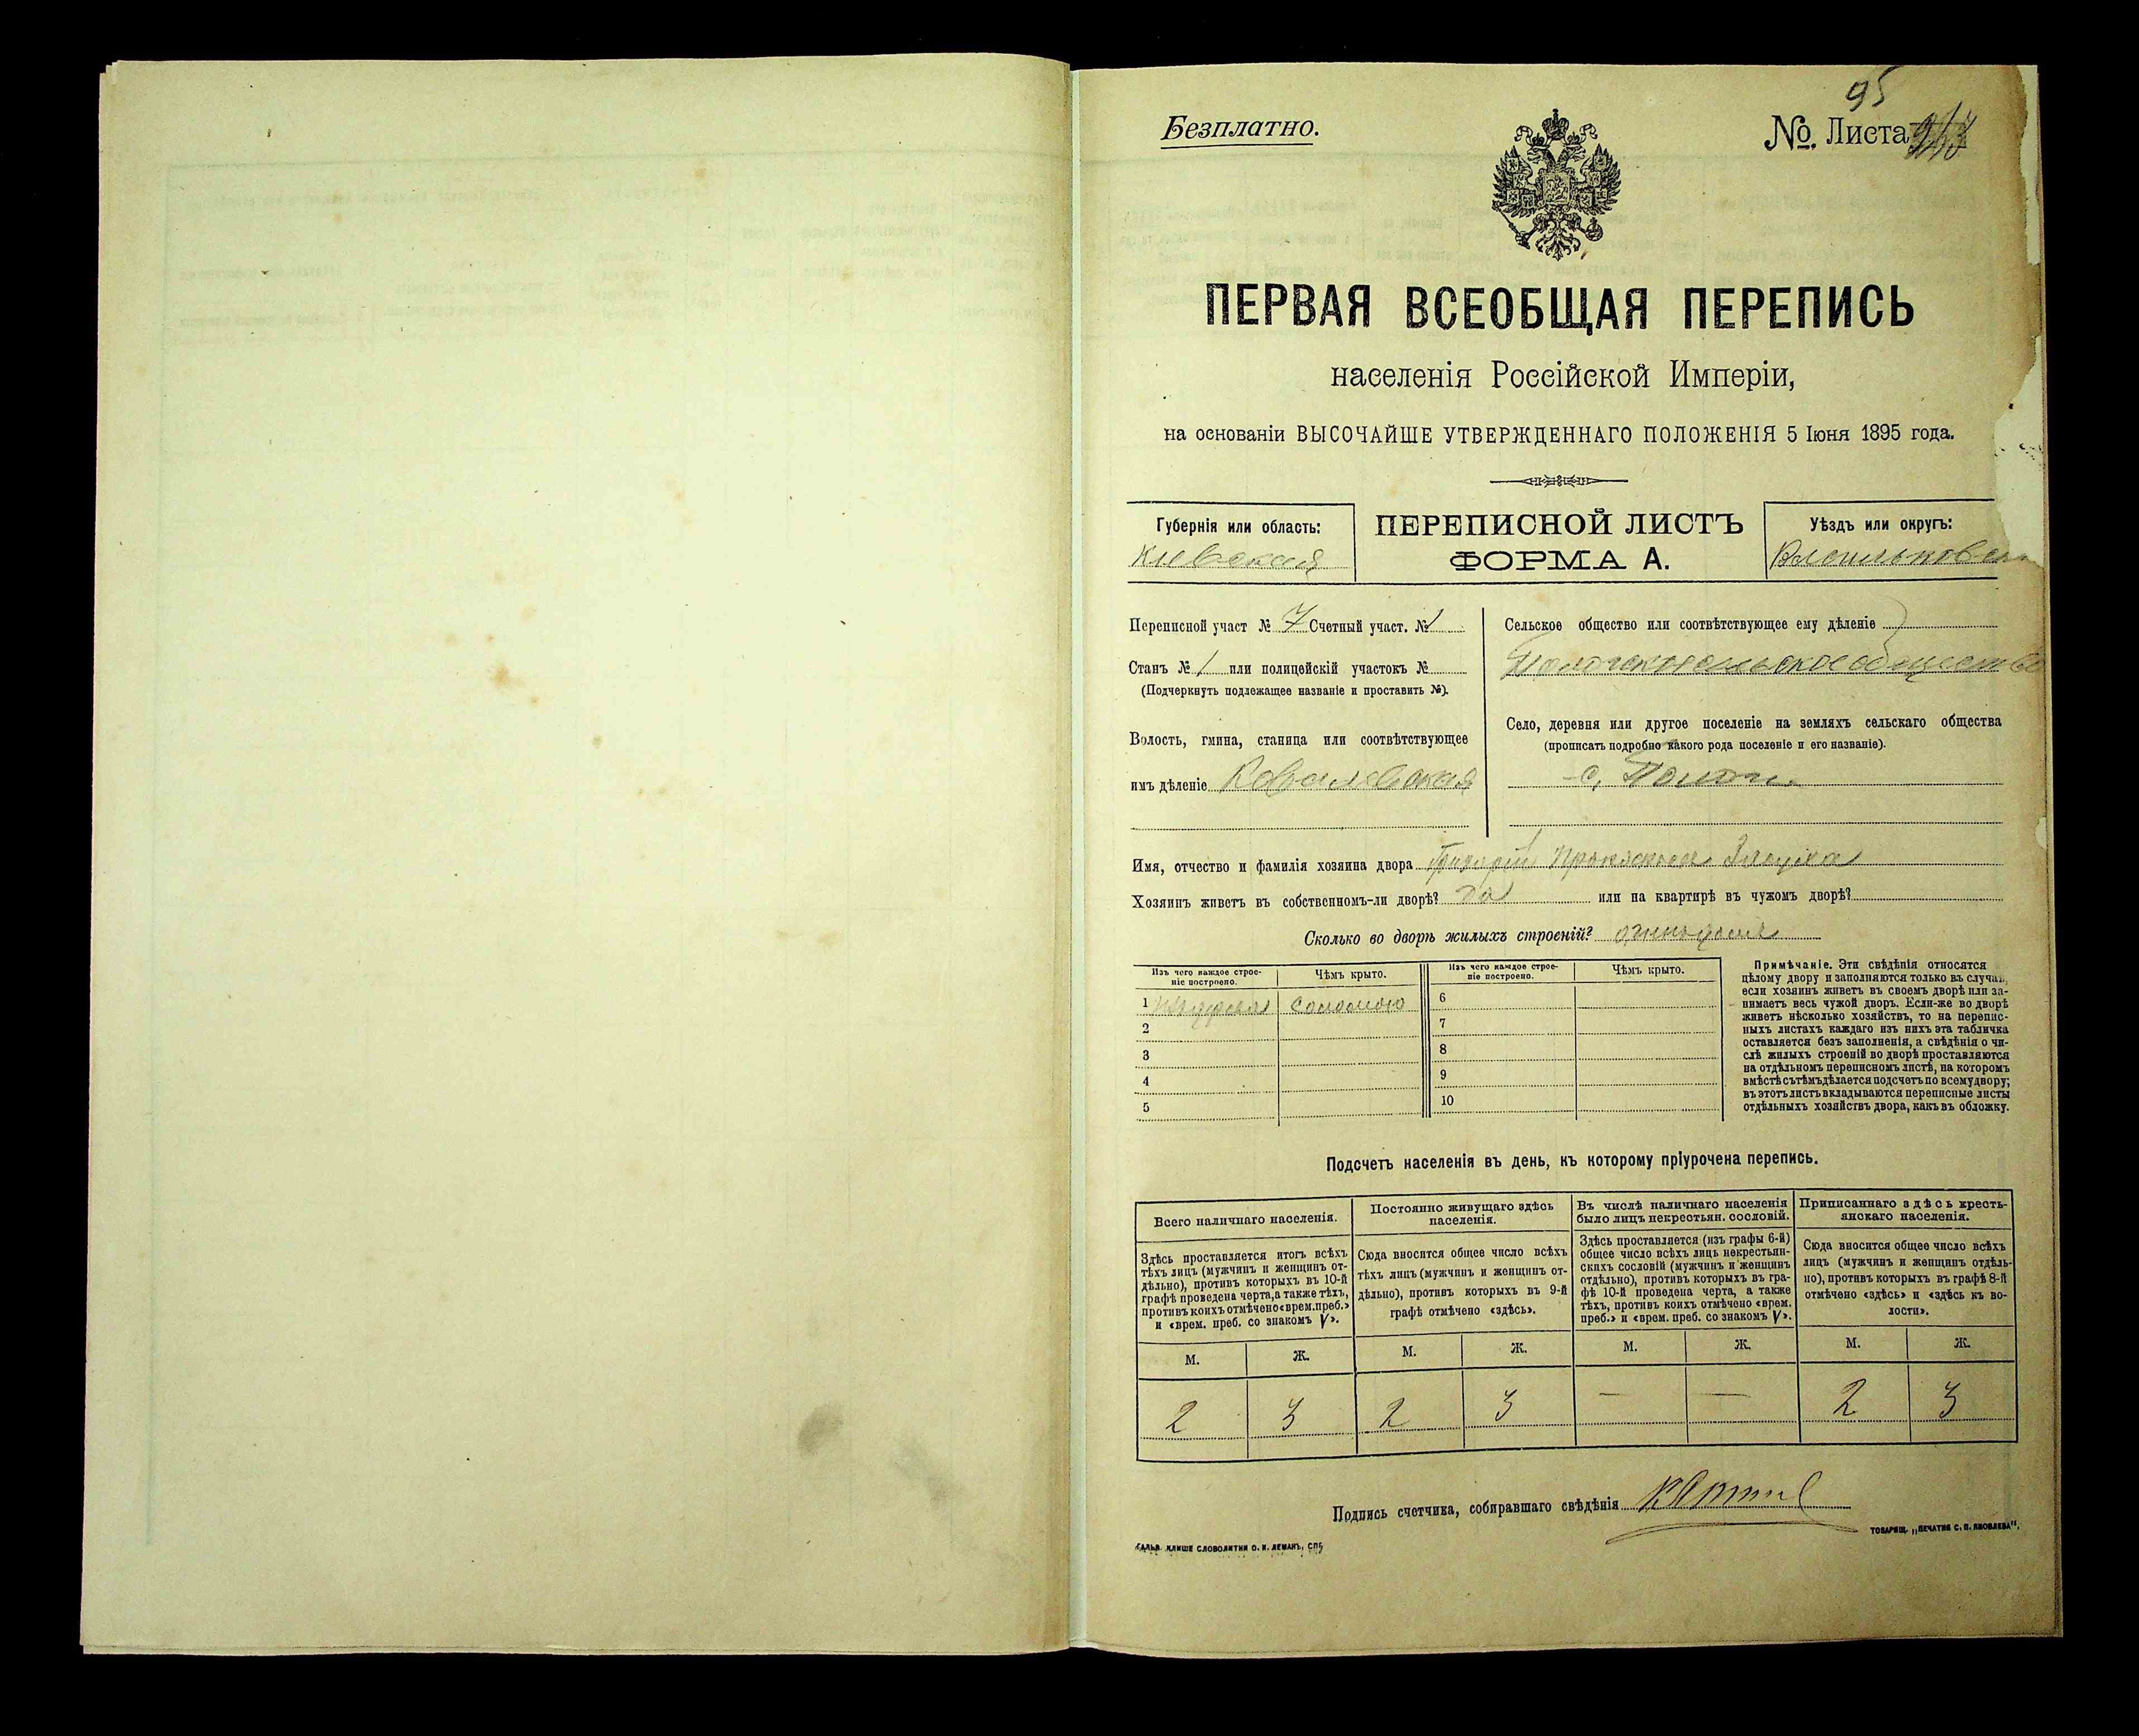 95
Безплатно.
№ Листа
ПЕРВАЯ ВСЕОБЩАЯ ПЕРЕПИСЬ
населенія Россійской Имперіи,
на основаніи ВЫСОЧАЙШЕ УТВЕРЖДЕННАГО ПОЛОЖЕНІЯ 5 Іюня 1895 года.
Губернія или область:
Кіевская
ПЕРЕПИСНОЙ ЛИСТЪ
ФОРМА А.
Уѣздъ или округъ:
Переписной участ № 7 Счетный участ. № 1
Станъ № 1 или полицейскій участокъ №
(Подчеркнуть подлежащее названіе и проставить №).
Волость, гмина, станица или соотвѣтствующее
имъ дѣленіе Ковалевская
Сельское общество или соотвѣтствующее ему дѣленіе
Пологское сельское общество
Село, деревня или другое поселеніе на земляхъ сельскаго общества
(прописать подробно какого рода поселеніе и его названіе).
с. Пологи
Имя, отчество и фамилія хозяина двора Григорій
Хозяинъ живетъ въ собственномъ-ли дворѣ? да или на квартирѣ въ чужомъ дворѣ?
Сколько во дворѣ жилыхъ строеній?
Изъ чего каждое строе-
ніе построено.
Чѣмъ крыто.
Изъ чего каждое строе-
ніе построено.
Чѣмъ крыто.
1 соломою 6
2 7
3 8
4 9
5 10
Примѣчаніе. Эти свѣдѣнія относятся
цѣлому двору и заполняются только въ случа
если хозяинъ живетъ въ своемъ дворѣ или за-
нимаетъ весь чужой дворъ. Если-же во дворѣ
живетъ нѣсколько хозяйствъ, то на перепис-
ныхъ листахъ каждаго изъ нихъ эта табличка
оставляется безъ заполненія, а свѣдѣнія о чи-
слѣ жилыхъ строеній во дворѣ проставляются
на отдѣльномъ переписномъ листѣ, на которомъ
вмѣстѣ съ тѣмъ дѣлается подсчетъ по всему двору;
въ этотъ листъ вкладываются переписные листы
отдѣльныхъ хозяйствъ двора, какъ въ обложку.
Подсчетъ населенія въ день, къ которому пріурочена перепись.
Всего наличнаго населенія.
Постоянно живущаго здѣсь
населенія.
Въ числѣ наличнаго населенія
было лицъ некрестьян. сословій.
Приписаннаго здѣсь кресть-
янскаго населенія.
Здѣсь проставляется итогъ всѣхъ
тѣхъ лицъ (мужчинъ и женщинъ от-
дѣльно), противъ которыхъ въ 10-й
графѣ проведена черта, а также тѣхъ,
противъ коихъ отмѣчено «врем. преб.»
и «врем. преб. со знакомъ V».
Сюда вносится общее число всѣхъ
тѣхъ лицъ (мужчинъ и женщинъ от-
дѣльно), противъ которыхъ въ 9-й
графѣ отмѣчено «здѣсь».
Здѣсь проставляется (изъ графы 6-й)
общее число всѣхъ лицъ некрестьян-
скихъ сословій (мужчинъ и женщинъ
отдѣльно), противъ которыхъ въ гра-
фѣ 10-й проведена черта, а также
тѣхъ, противъ коихъ отмѣчено «врем.
преб.» и «врем. преб. со знакомъ V».
Сюда вносится общее число всѣхъ
лицъ (мужчинъ и женщинъ отдѣль-
но), противъ которыхъ въ графѣ 8-й
отмѣчено «здѣсь» и «здѣсь къ во-
лости».
М. Ж. М. Ж. М. Ж. М. Ж.
2 3 2 3 — — 2 3
Подпись счетчика, собиравшаго свѣдѣнія
ГАЛЬВ. КЛИШЕ СЛОВОЛИТНИ О. И. ЛЕМАНЪ, СПБ
ТОВАРИЩ. „ПЕЧАТНЯ С. П. ЯКОВЛЕВА".